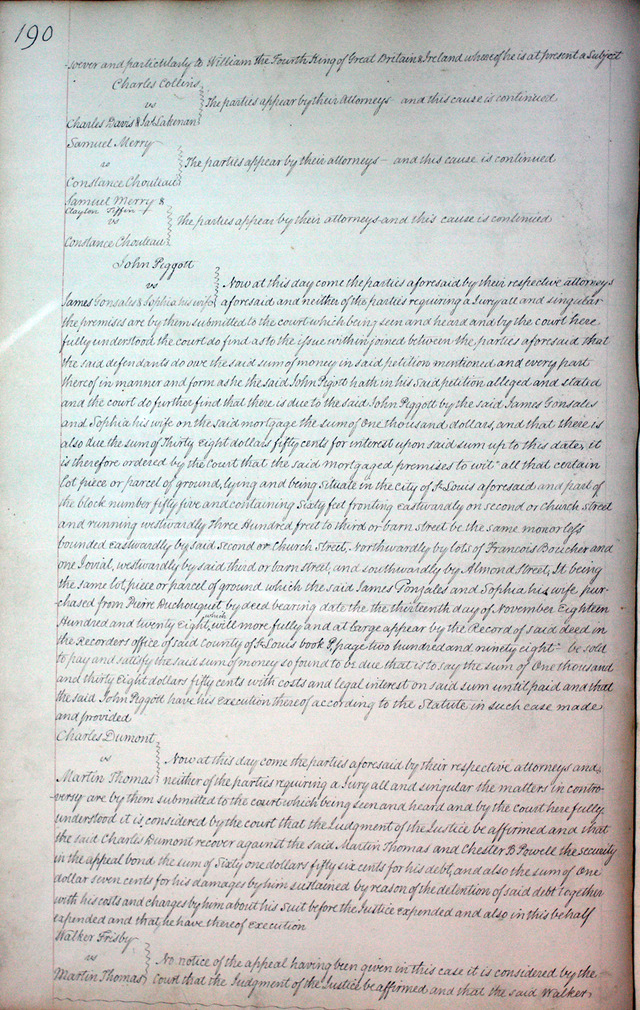 190
soever and particularly to William the Fourth King of Great Britain & Ireland whereof he is at present a Subject
Charles Collins
vs
The parties appear by their Attorneys and this cause is continued
Charles Davis & Jas Lakenan
Samuel Merry
vs
The parties appear by their attorneys – and this cause is continued
Constance Chouteau
Samuel Merry &
Clayton Tiffin
vs
The parties appear by their attorneys and this cause is continued
Constance Chouteau
John Piggott
vs
Now at this day come the parties aforesaid by their respective attorneys
James Gonsales & Sophia his wife
aforesaid and neither of the parties requiring a Jury all and singular
the premises are by them submitted to the court which being seen and heard and by the court here
fully understood the court do find as to the issue within joined between the parties aforesaid that
the said defendants do owe the said sum of money in said petition mentioned and every part
thereof in manner and form as he the said John Pigott hath in his said petition alleged and stated
and the court do further find that there is due to the said John Piggott by the said James Gonsales
and Sophia his wife on the said mortgage the sum of One thousand dollars, and that there is
also due the sum of Thirty eight dollars fifty cents for interest upon said sum up to this date, it
is therefore ordered by the court that the said mortgaged premises to wit all that certain
lot piece or parcel of ground, lying and being situate in the City of St Louis aforesaid and part of
the block number fifty five and containing Sixty feet fronting eastwardly on second or Church Street
and running westwardly Three Hundred freet to third or barn street be the same mor or less
bounded eastwardly by said second or Church Street, Northwardly by lots of Francois Boucher and
one Jovial, westwardly by said third or barn street, and southwardly by Almond Street, It being
the same lot, piece or parcel of ground which the said James Gonzales and Sophia his wife pur-
chased from Pierre Duchouquit by deed bearing date the the thirteenth day of November Eighteen
Hundred and twenty Eight, which will more fully and at large appear by the Record of said deed in
the Recorders office of said County of St Louis book P, page two hundred and ninety eight – be sold
to pay and satisfy the said sum of money so found to be due that is to say the sum of One thousand
and thirty Eight dollars fifty cents with costs and legal interest on said sum until paid and that
the said John Piggott have his execution thereof according to the Statute in such case made
and provided
Charles Dumont
vs
Now at this day come the parties aforesaid by their respective attorneys and
Martin Thomas
neither of the parties requiring a Jury all and singular the matters in contro-
versy are by them submitted to the court which being seen and heard and by the Court here fully
understood it is considered by the court that the Judgment of the Justice be affirmed and that
the said Charles Dumont recover against the said Martin Thomas and Chester B Powell the security
in the appeal bond the sum of Sixty one dollars fifty six cents for his debt, and also the sum of One
dollar seven cents for his damages by him sustained by reason of the detention of said debt together
with his costs and charges by him about his Suit before the Justice expended and also in this behalf
expended and that he have thereof execution
Walker Frisby
vs
No notice of the appeal having been given in this case it is considered by the
Martin Thomas
Court that the Judgment of the Justice be affirmed and that the said Walker